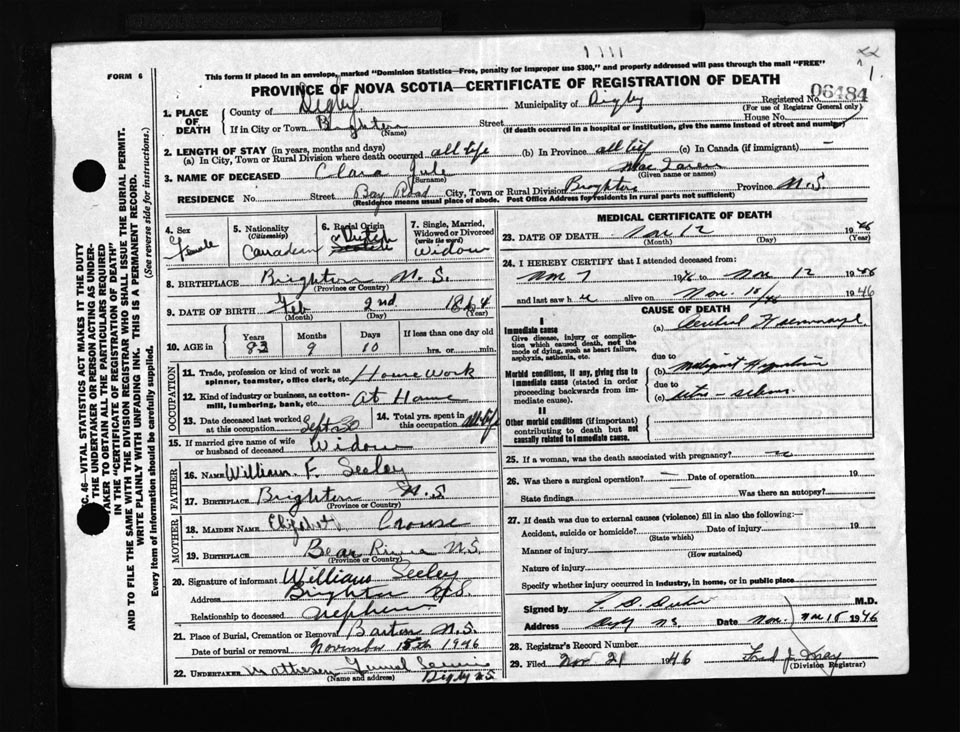 FORM 6
This form if placed in an envelope, marked "Dominion Statistics—Free, penalty for improper use $300," and properly addressed will pass through the mail "FREE"
PROVINCE OF NOVA SCOTIA—CERTIFICATE OF REGISTRATION OF DEATH
Registered No. 06484
(For use of Registrar General only)
1. PLACE OF DEATH
County of Digby Municipality of Digby
If in City or Town Brighton Street House No.
(Name) (If death occurred in a hospital or institution, give the name instead of street and number)
2. LENGTH OF STAY (in years, months and days)
(a) In City, Town or Rural Division where death occurred all life (b) In Province all life (c) In Canada (if immigrant) —
3. NAME OF DECEASED Clara
(Surname) (Given name or names)
RESIDENCE No. Street Bay Road City, Town or Rural Division Brighton Province N.S.
(Residence means usual place of abode. Post Office Address for residents in rural parts not sufficient)
4. Sex Female
5. Nationality (Citizenship) Canadian
6. Racial Origin
7. Single, Married, Widowed or Divorced (write the word) Widow
8. BIRTHPLACE Brighton N.S.
(Province or Country)
9. DATE OF BIRTH Feb 2nd 1864
(Month) (Day) (Year)
10. AGE in Years Months Days If less than one day old
83 9 10 hrs. or min.
OCCUPATION
11. Trade, profession or kind of work as spinner, teamster, office clerk, etc. House Work
12. Kind of industry or business, as cotton-mill, lumbering, bank, etc. At Home
13. Date deceased last worked at this occupation Sept 20
14. Total yrs. spent in this occupation all life
15. If married give name of wife or husband of deceased Widow
FATHER
16. NAME William F. Seeley
17. BIRTHPLACE Brighton N.S.
(Province or Country)
MOTHER
18. MAIDEN NAME Elizabeth Crouse
19. BIRTHPLACE Bear River N.S.
(Province or Country)
20. Signature of informant William Seeley
Address Brighton N.S.
Relationship to deceased nephew
21. Place of Burial, Cremation or Removal Barton N.S.
Date of burial or removal November 15th 1946
22. UNDERTAKER
(Name and address) Digby N.S.
MEDICAL CERTIFICATE OF DEATH
23. DATE OF DEATH Nov 12 1946
(Month) (Day) (Year)
24. I HEREBY CERTIFY that I attended deceased from:
Nov 7 1946 to Nov 12 1946
and last saw h er alive on Nov. 1946
CAUSE OF DEATH
I
Immediate cause
Give disease, injury or complication which caused death, not the mode of dying, such as heart failure, asphyxia, asthenia, etc.
(a) Cerebral Haemorrhage
due to
Morbid conditions, if any, giving rise to immediate cause (stated in order proceeding backwards from immediate cause).
(b) Malignant
due to
(c)
II
Other morbid conditions (if important) contributing to death but not causally related to immediate cause.
25. If a woman, was the death associated with pregnancy? no
26. Was there a surgical operation? — Date of operation 19
State findings Was there an autopsy?
27. If death was due to external causes (violence) fill in also the following:—
Accident, suicide or homicide? Date of injury 19
(State which)
Manner of injury
(How sustained)
Nature of injury
Specify whether injury occurred in industry, in home, or in public place
Signed by M.D.
Address Digby N.S. Date Nov. 1946
28. Registrar's Record Number
29. Filed Nov 21 1946 Fred J.
(Division Registrar)
C. 46—VITAL STATISTICS ACT MAKES IT THE DUTY
THE UNDERTAKER OR PERSON ACTING AS UNDER-
TAKER TO OBTAIN ALL THE PARTICULARS REQUIRED
IN THE "CERTIFICATE OF REGISTRATION OF DEATH"
AND TO FILE THE SAME WITH THE DIVISION REGISTRAR WHO SHALL ISSUE THE BURIAL PERMIT.
WRITE PLAINLY WITH UNFADING INK. THIS IS A PERMANENT RECORD.
Every item of information should be carefully supplied. (See reverse side for instructions.)